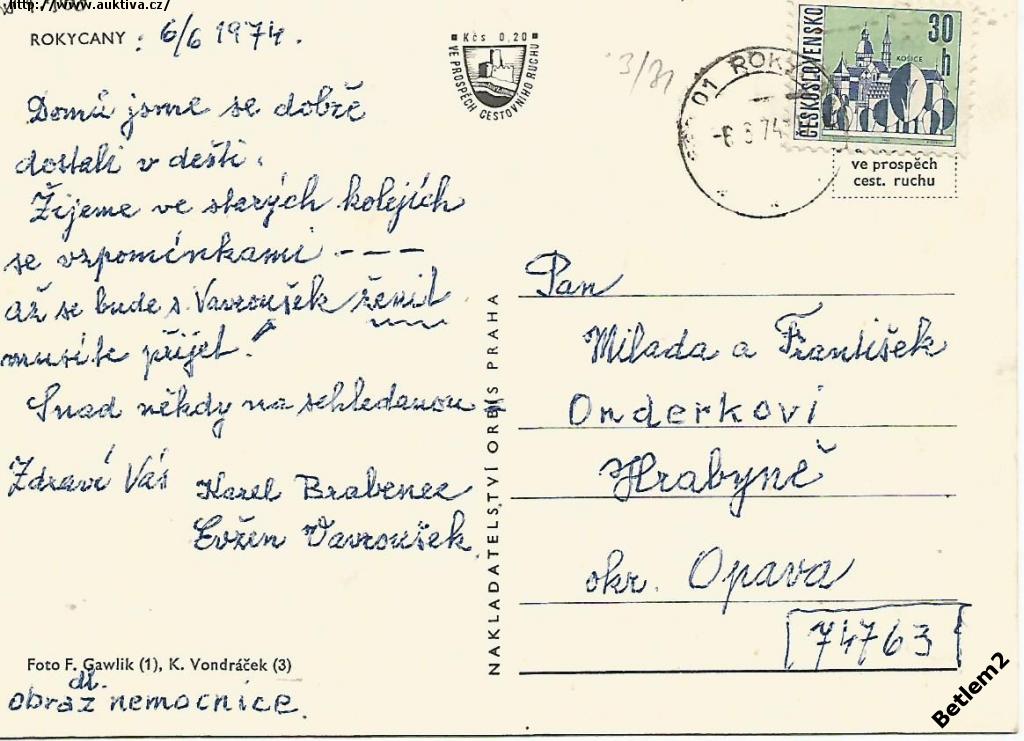 http://www.auktiva.cz/
ROKYCANY : 6/6 1974.
Domů jsme se dobře
dostali v dešti.
Žijeme ve starých kolejích
se vzpomínkami ---
až se bude s. Vavroušek ženit
musíte přijet!
Snad někdy na schledanou
Zdraví Vás Karel Brabenec
Evžen Vavroušek.
Foto F. Gawlik (1), K. Vondráček (3)
dl.
obraz nemocnice.
Kčs 0,20
VE PROSPĚCH CESTOVNÍHO RUCHU
NAKLADATELSTVÍ ORBIS PRAHA
3/71
01 ROKY
-6.6.74
ČESKOSLOVENSKO
30 h
KOŠICE
ve prospěch
cest. ruchu
Pan
Milada a František
Onderkovi
Hrabyně
okr. Opava
74763
Betlem2